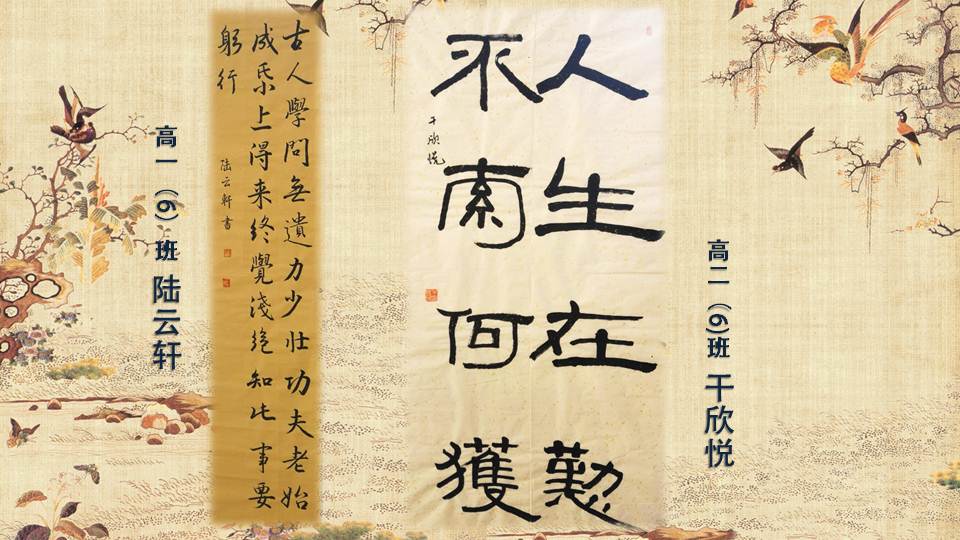 高一（6）班 陆云轩
古人學問無遺力少壮功夫老始
成帋上得来终覺淺绝知此事要
躬行
陆云轩書
人生在勤
不索何獲
干欣悦
高二（6)班 干欣悦